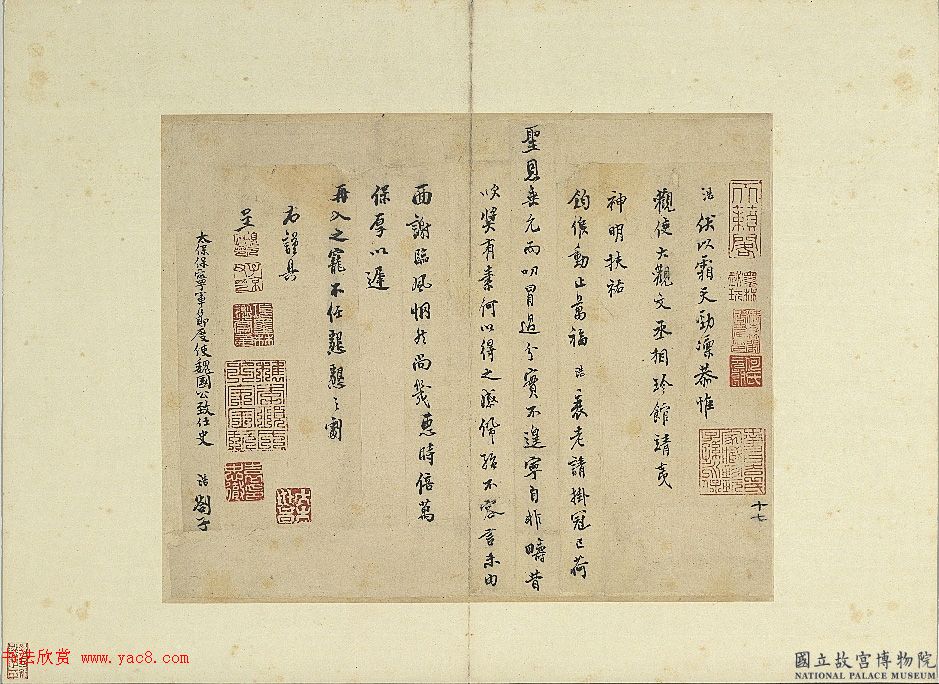 浩伏以霜天勁凜恭惟
觀使大觀文丞相珍館靖夷
神明扶祐
鈞候動止萬福浩衰老請掛冠已荷
聖恩垂允而叨冒過分實不遑寧自非疇昔
吹獎有素何以得之感佩殆不容言未由
西謝臨風惘然尚幾惠時倍萬
保厚以遲
再入之寵不任懇懇之劄
右謹具
呈
太保保寧軍節度使魏國公致仕史 浩 劄子
十七
书法欣赏 www.yac8.com
國立故宮博物院
NATIONAL PALACE MUSEUM